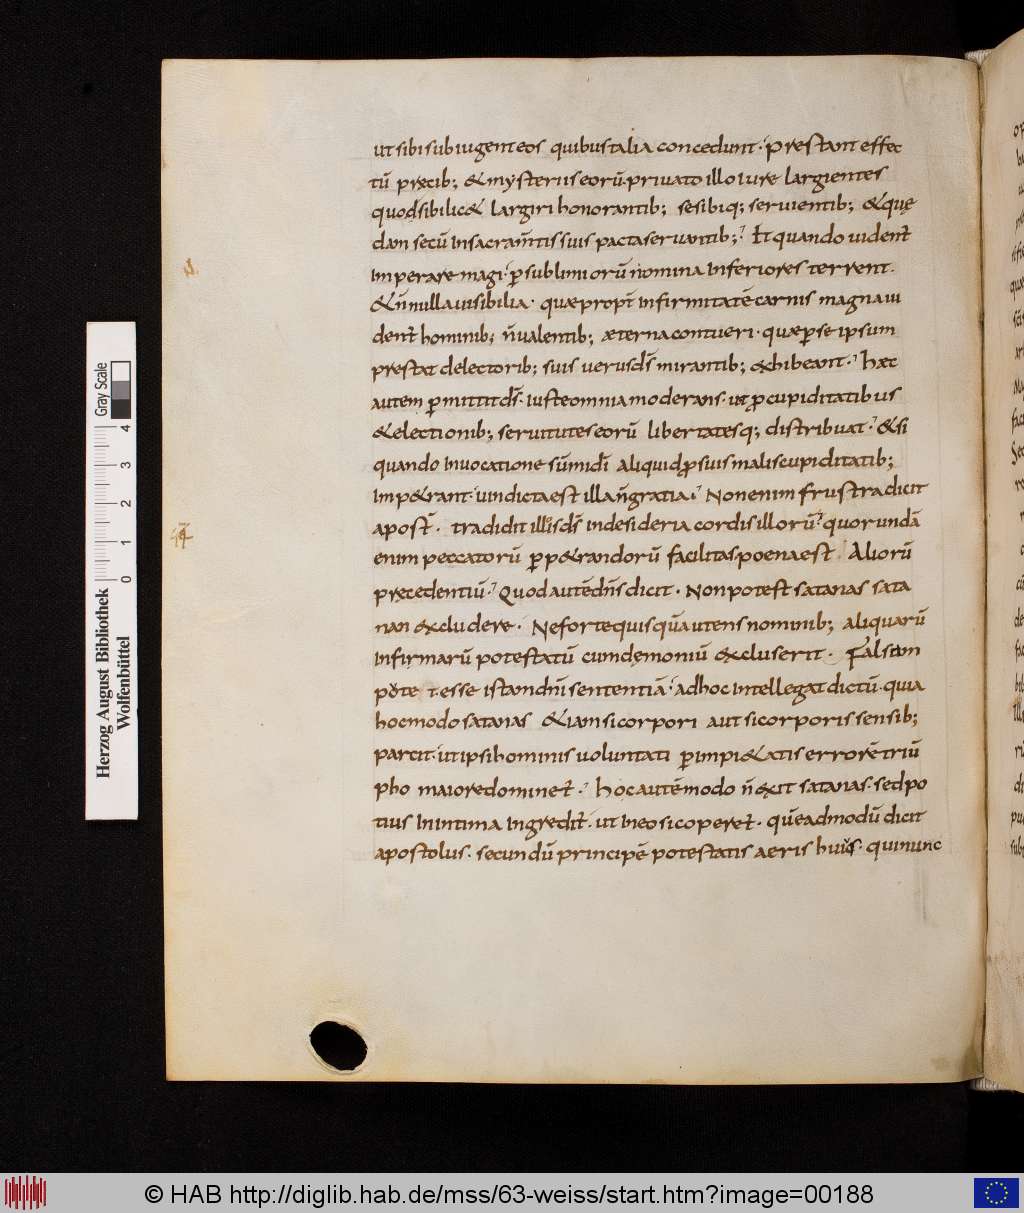 ut sibi subiugent eos quibus talia concedunt. Prestant effec
tū precib; & mysteriis eorū. privato illo iure largientes
quod sibi lic& largiri honorantib; se sibiq; seruientib; & quę
dan secū in sacram̄tis suis pacta seruantib; Et quando uident̄
imperare magi. p̄ sublimiorū nomina inferiores terrent.
& n̄nulla uisibilia. quae propt̄ infirmitatē carnis magna ui
dent̄ hominib; n̄ ualentib; æterna contueri. quae p̄ se ipsum
prestat delectorib; suis uerus ds̄ mirantib; exhibeant. Haec
autem p̄mittit ds̄. iuste omnia moderans. ut p̄ cupiditatibus
& electionib; seruitutes eorū libertatesq; distribuat. & si
quando inuocatione sūmi dī aliquid p̄ suis malis cupiditatib;
imp&rant. uindicta est illa n̄ gratia. Non enim frustra dicit
apost̄. tradidit illos ds̄ in desideria cordis illorū. quorundā
enim peccatorū p̄p&randorū facilitas poena est. Aliorū
precedentiū. Quod autē dn̄s dicit. Non potest satanas sata
nan excludere. Ne forte quisquā utens nominib; aliquarū
infirmarū potestatū cum demoniū excluserit. Falsam
pote t. esse istan dn̄i sententiā. ad hoc intellegat dictū. quia
hoc modo satanas &iam si corpori aut si corporis sensib;
parcit. ut ipsi hominis uoluntati p̄ impi&atis errorē triū
pho maiore dominet̄. Hoc autē modo n̄ exit satanas. sed po
tius in intima ingredit̄. ut in eo sic operet̄. quē admodū dicit
apostolus. secundū principē potestatis aeris huius. qui nunc
Herzog August Bibliothek
Wolfenbüttel
0 1 2 3 4
Gray Scale
© HAB http://diglib.hab.de/mss/63-weiss/start.htm?image=00188